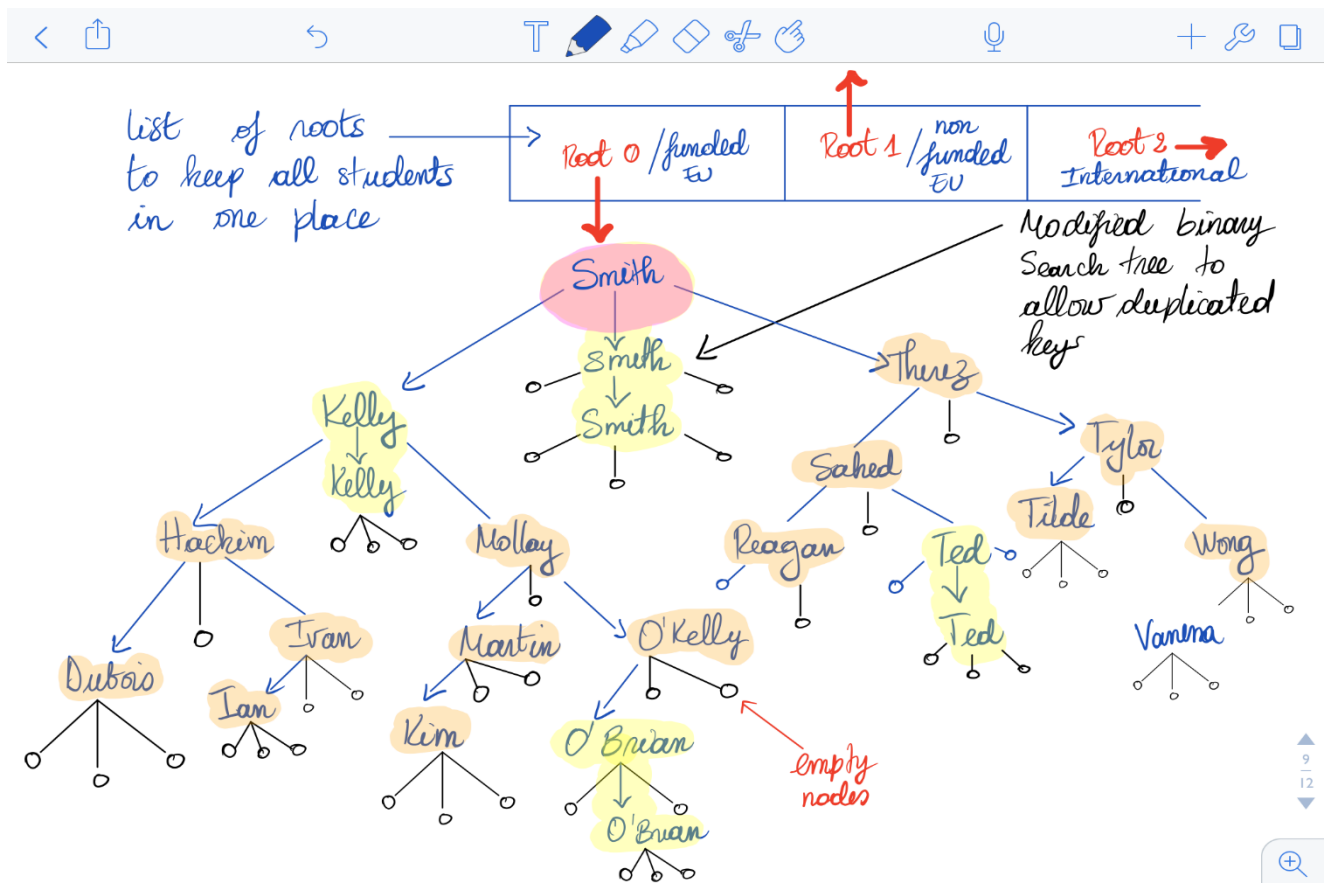 list of roots
to keep all students
in one place
Root 0 / funded
EU
Root 1 / non
funded
EU
Root 2
International
Modified binary
Search tree to
allow duplicated
keys
Smith
Smith
Smith
Kelly
Kelly
Therez
Tylor
Sahed
Tilde
Hackim
Mollay
Reagan
Ted
Wong
Ivan
Martin
O'Kelly
Ted
Vanena
Dubois
Ian
Kim
O'Brian
O'Brian
empty
nodes
9
12